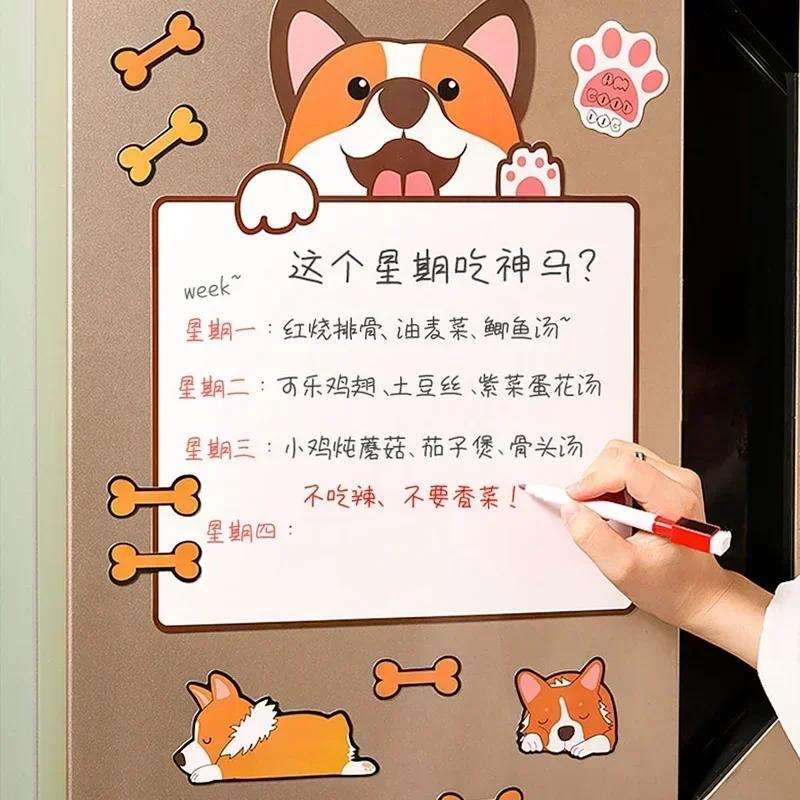 AM
GOOD
DOG
这个星期吃神马?
week~
星期一：红烧排骨、油麦菜、鲫鱼汤~
星期二：可乐鸡翅、土豆丝、紫菜蛋花汤
星期三：小鸡炖蘑菇、茄子煲、骨头汤
不吃辣、不要香菜！
星期四：